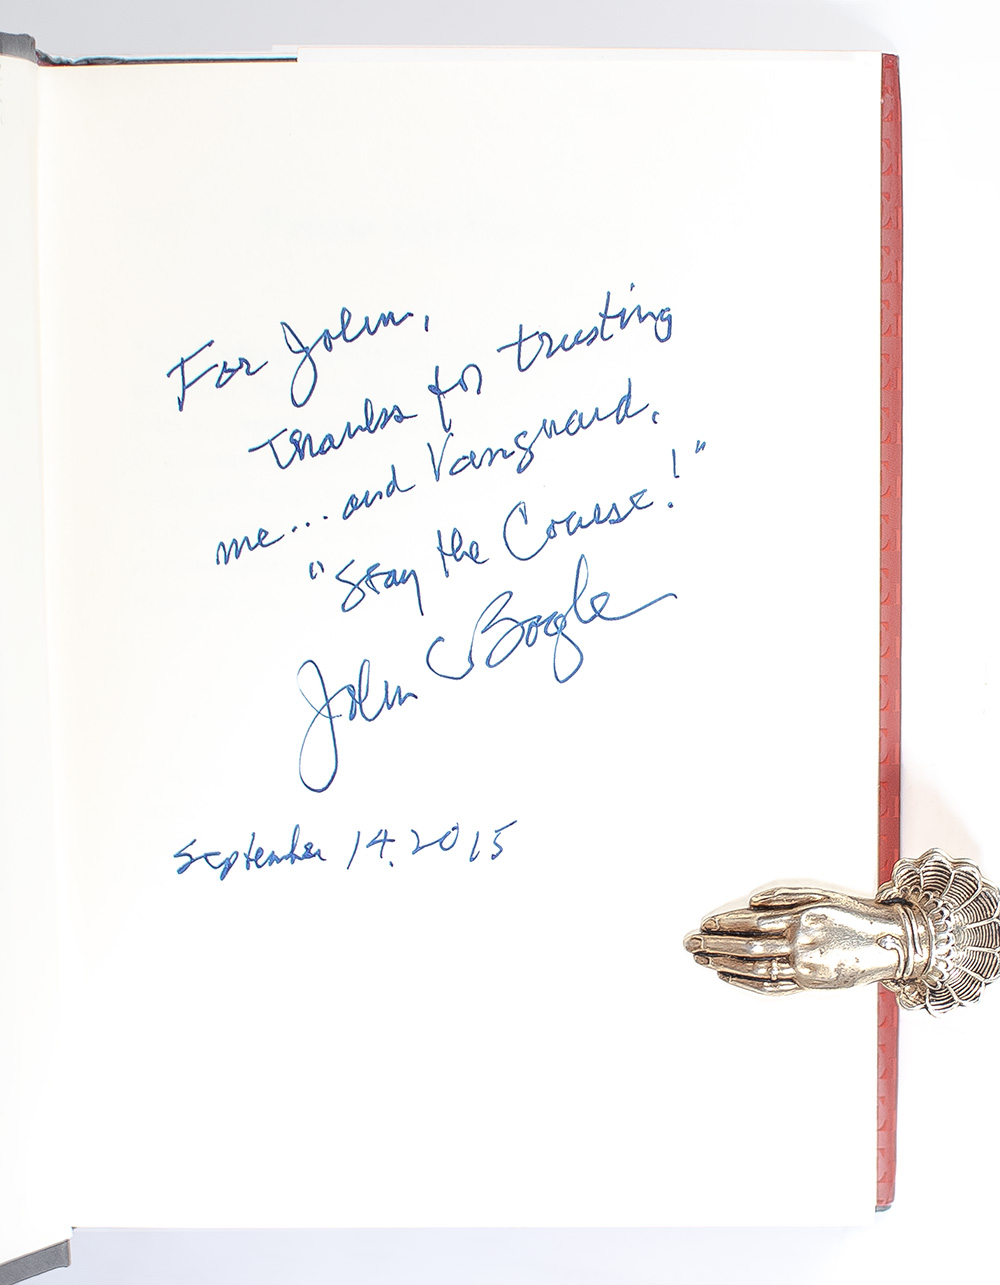 For John,
thanks for trusting
me... and Vanguard.
"Stay the Course!"
John C Bogle
September 14, 2015